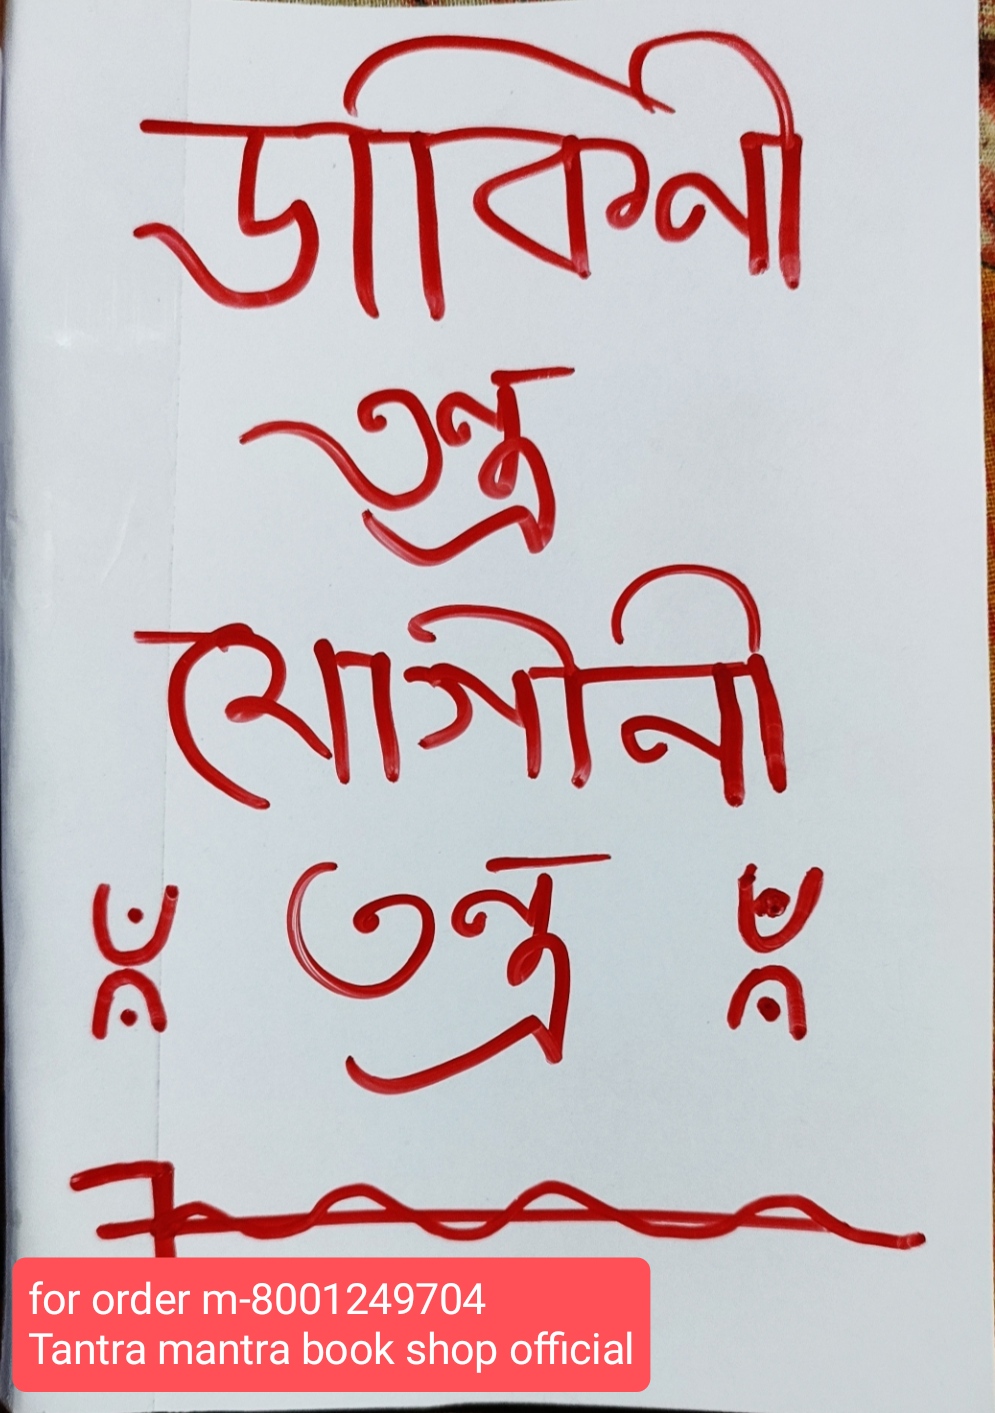 ডাকিনী
তন্ত্র
যোগীনী
তন্ত্র
for order m-8001249704
Tantra mantra book shop official